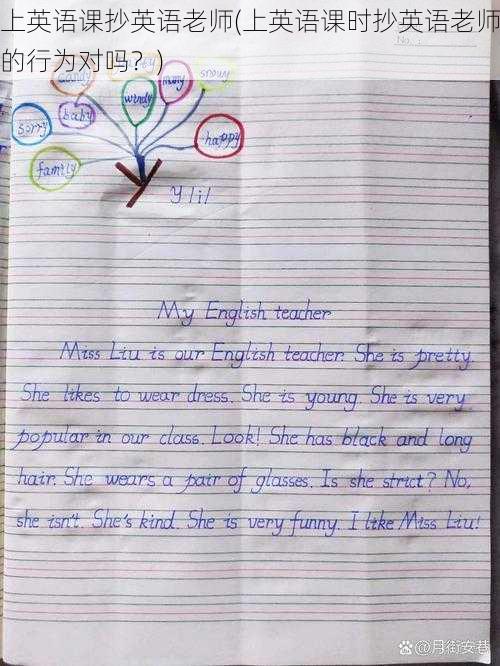 上英语课抄英语老师(上英语课时抄英语老师
的行为对吗？)
No.:
candy
many
snowy
windy
baby
sorry
happy
family
Y /i/
My English teacher
Miss Liu is our English teacher. She is pretty.
She likes to wear dress. She is young. She is very
popular in our class. Look! She has black and long
hair. She wears a pair of glasses. Is she strict? No,
she isn't. She's kind. She is very funny. I like Miss Liu!
@月街安巷